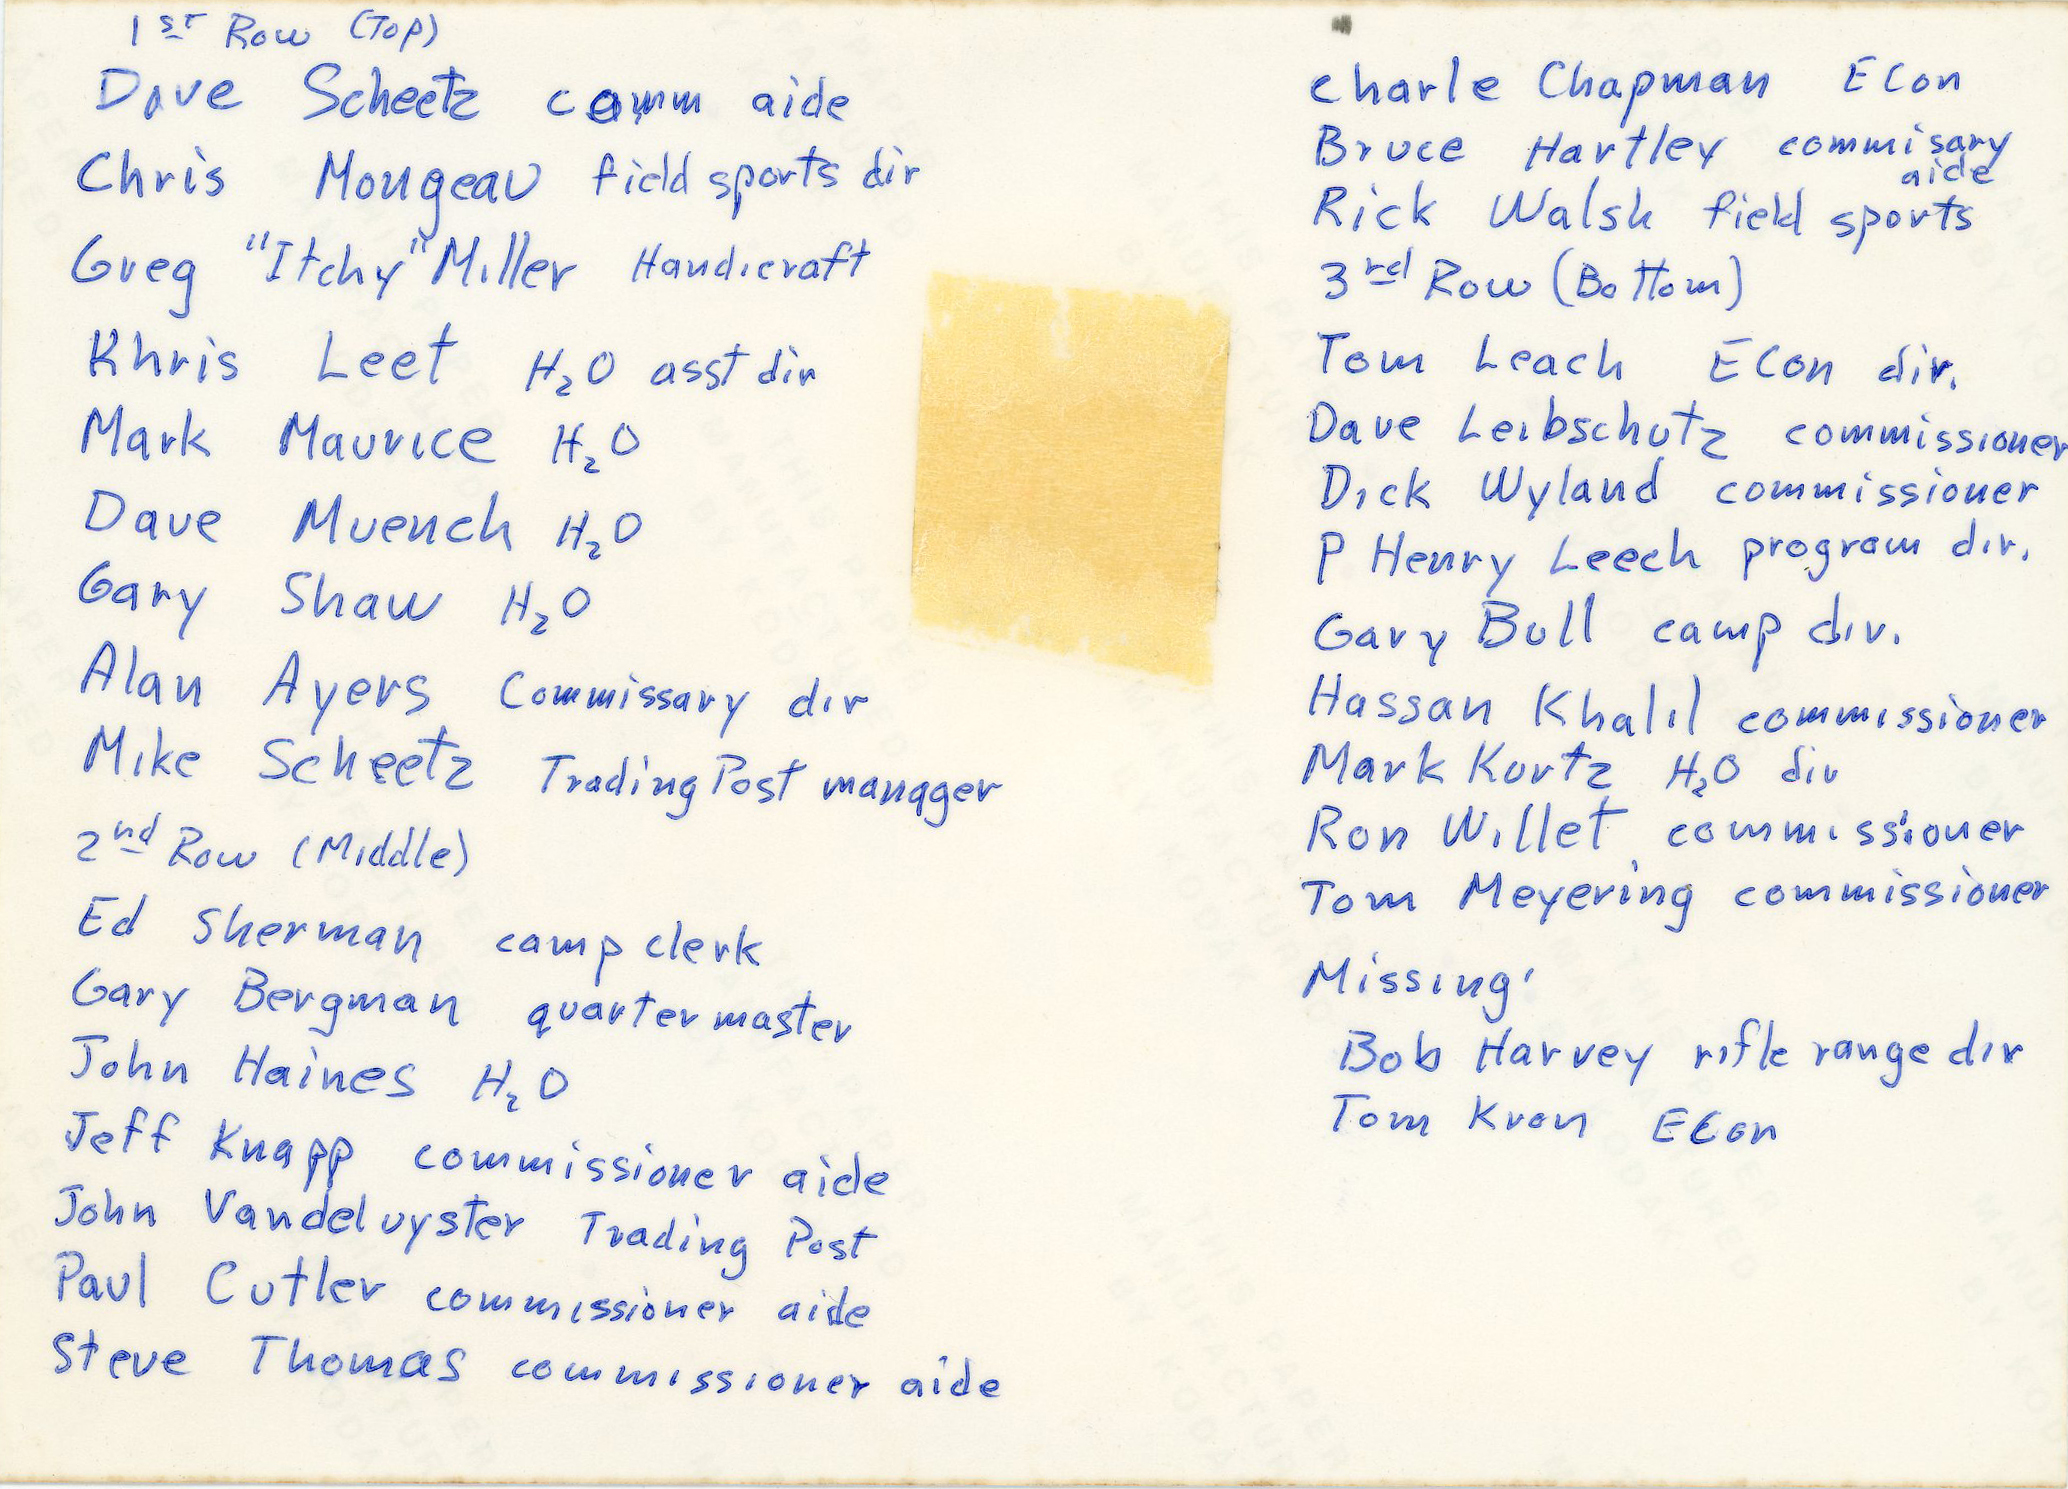 1st Row (Top)
Dave Scheetz comm aide
Chris Mongeau field sports dir
Greg "Itchy" Miller Handicraft
Khris Leet H₂O asst dir
Mark Maurice H₂O
Dave Muench H₂O
Gary Shaw H₂O
Alan Ayers Commissary dir
Mike Scheetz Trading Post manager
2nd Row (Middle)
Ed Sherman camp clerk
Gary Bergman quartermaster
John Haines H₂O
Jeff Knapp commissioner aide
John Vandeluyster Trading Post
Paul Cutler commissioner aide
Steve Thomas commissioner aide
Charle Chapman ECon
Bruce Hartley commisary
aide
Rick Walsh field sports
3rd Row (Bottom)
Tom Leach ECon dir.
Dave Leibschutz commissioner
Dick Wyland commissioner
P Henry Leech program dir.
Gary Bull camp dir.
Hassan Khalil commissioner
Mark Kurtz H₂O dir
Ron Willet commissioner
Tom Meyering commissioner
Missing'
Bob Harvey rifle range dir
Tom Kron ECon